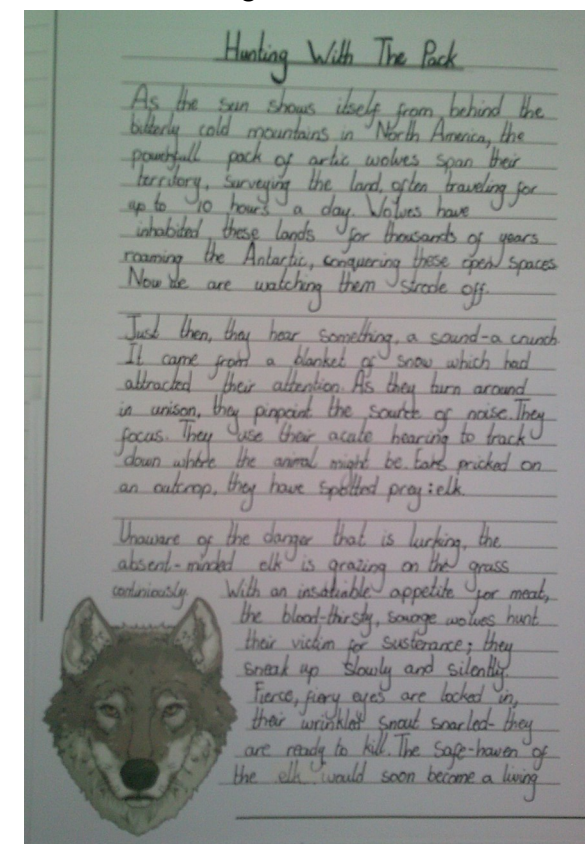 Hunting With The Pack
As the sun shows itself from behind the
bitterly cold mountains in North America, the
powerfull pack of artic wolves span their
territory, surveying the land, often traveling for
up to 10 hours a day. Wolves have
inhabited these lands for thousands of years
roaming the Antartic, conquering these open spaces
Now we are watching them strode off.
Just then, they hear something, a sound-a crunch
It came from a blanket of snow which had
attracted their attention. As they turn around
in unison, they pinpoint the source of noise. They
focus. They use their acate hearing to track
down where the animal might be. Ears pricked on
an outcrop, they have spotted prey: elk.
Unaware of the danger that is lurking, the
absent-minded elk is grazing on the grass
continiously. With an insatiable appetite for meat,
the blood-thirsty, savage wolves hunt
their victim for sustenance; they
sneak up slowly and silently.
Fierce, fiery eyes are locked in,
their wrinkled snout snarled- they
are ready to kill. The safe-haven of
the elk would soon become a living